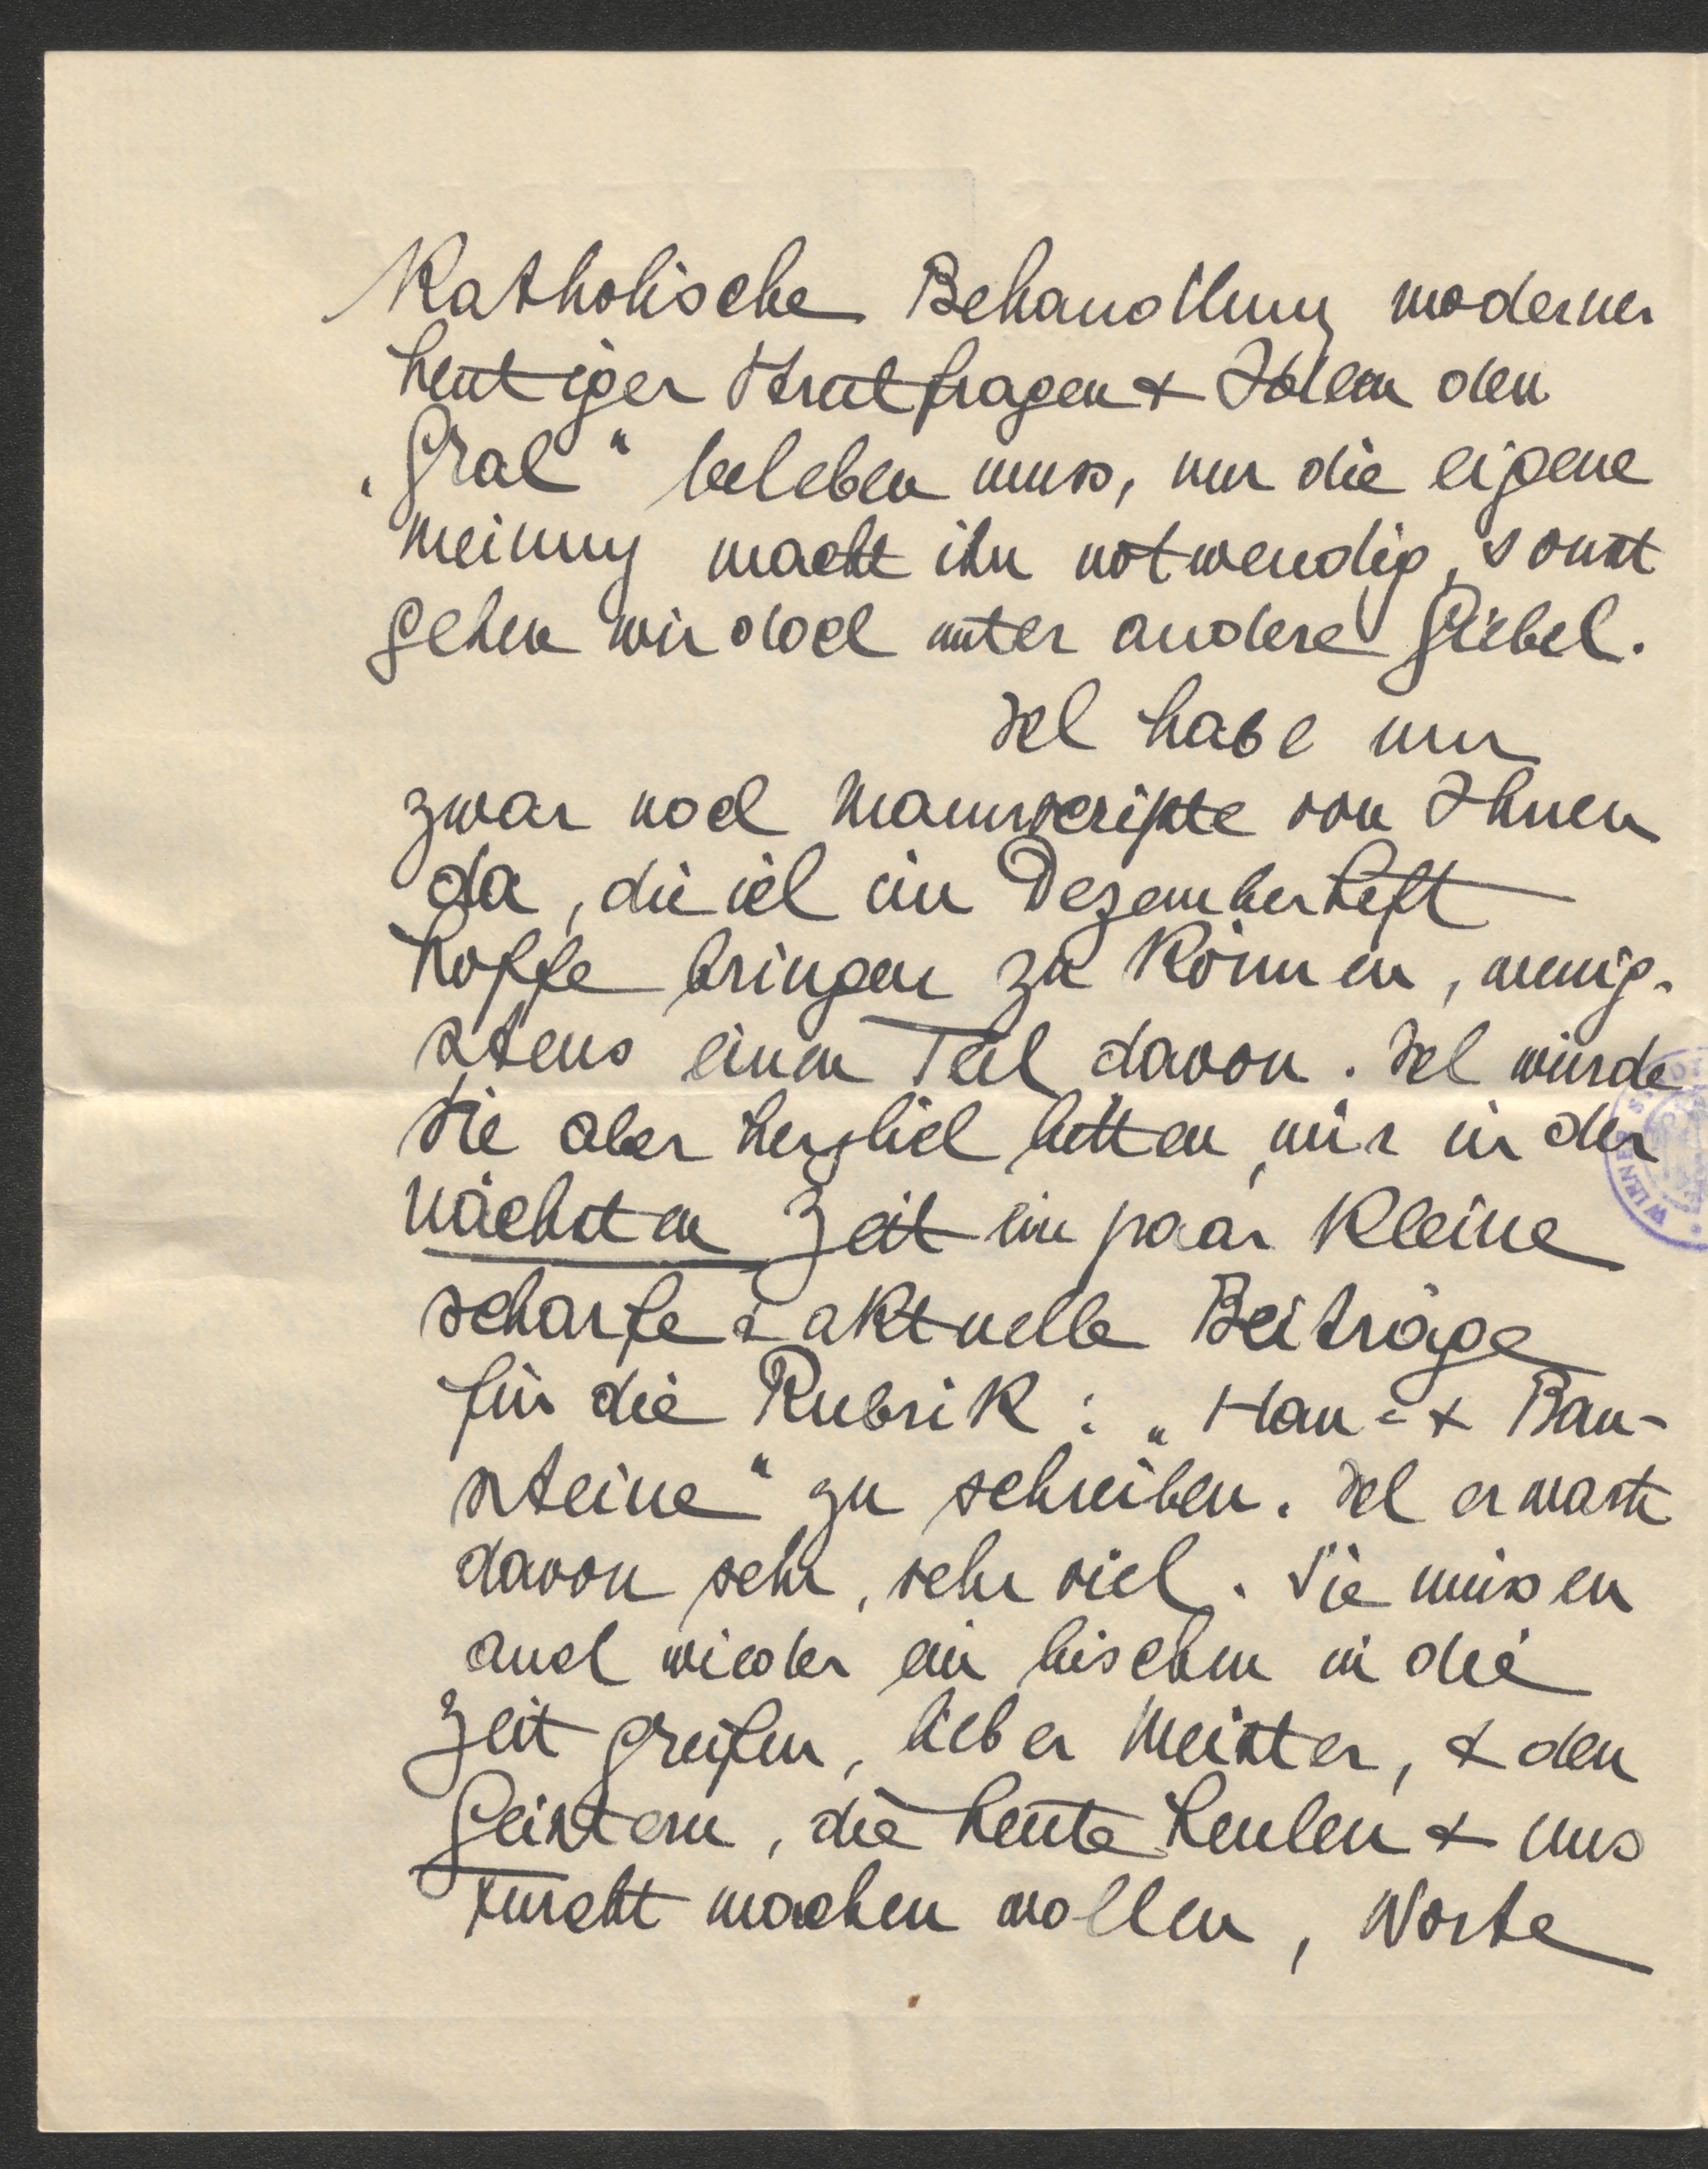 Katholische Behandlung moderner
heutiger Streitfragen & Ideen den
„Gral“ beleben muss, nur die eigene
Meinung macht ihn notwendig, sonst
gehen wir doch unter andere Giebel.
Ich habe nun
zwar noch Manuscripte von Ihnen
da, die ich im Dezemberheft
hoffe bringen zu können, wenig-
stens einen Teil davon. Ich würde
Sie aber herzlich bitten, mir in der
nächsten Zeit ein paar kleine
scharfe & aktuelle Beiträge
für die Rubrik: „Hau- & Bau-
steine“ zu schreiben. Ich erwarte
davon sehr, sehr viel. Sie müssen
auch wieder ein bischen in die
Zeit greifen, lieber Meister, & den
Geistern, die heute heulen & uns
Furcht machen wollen, Worte
WIENE